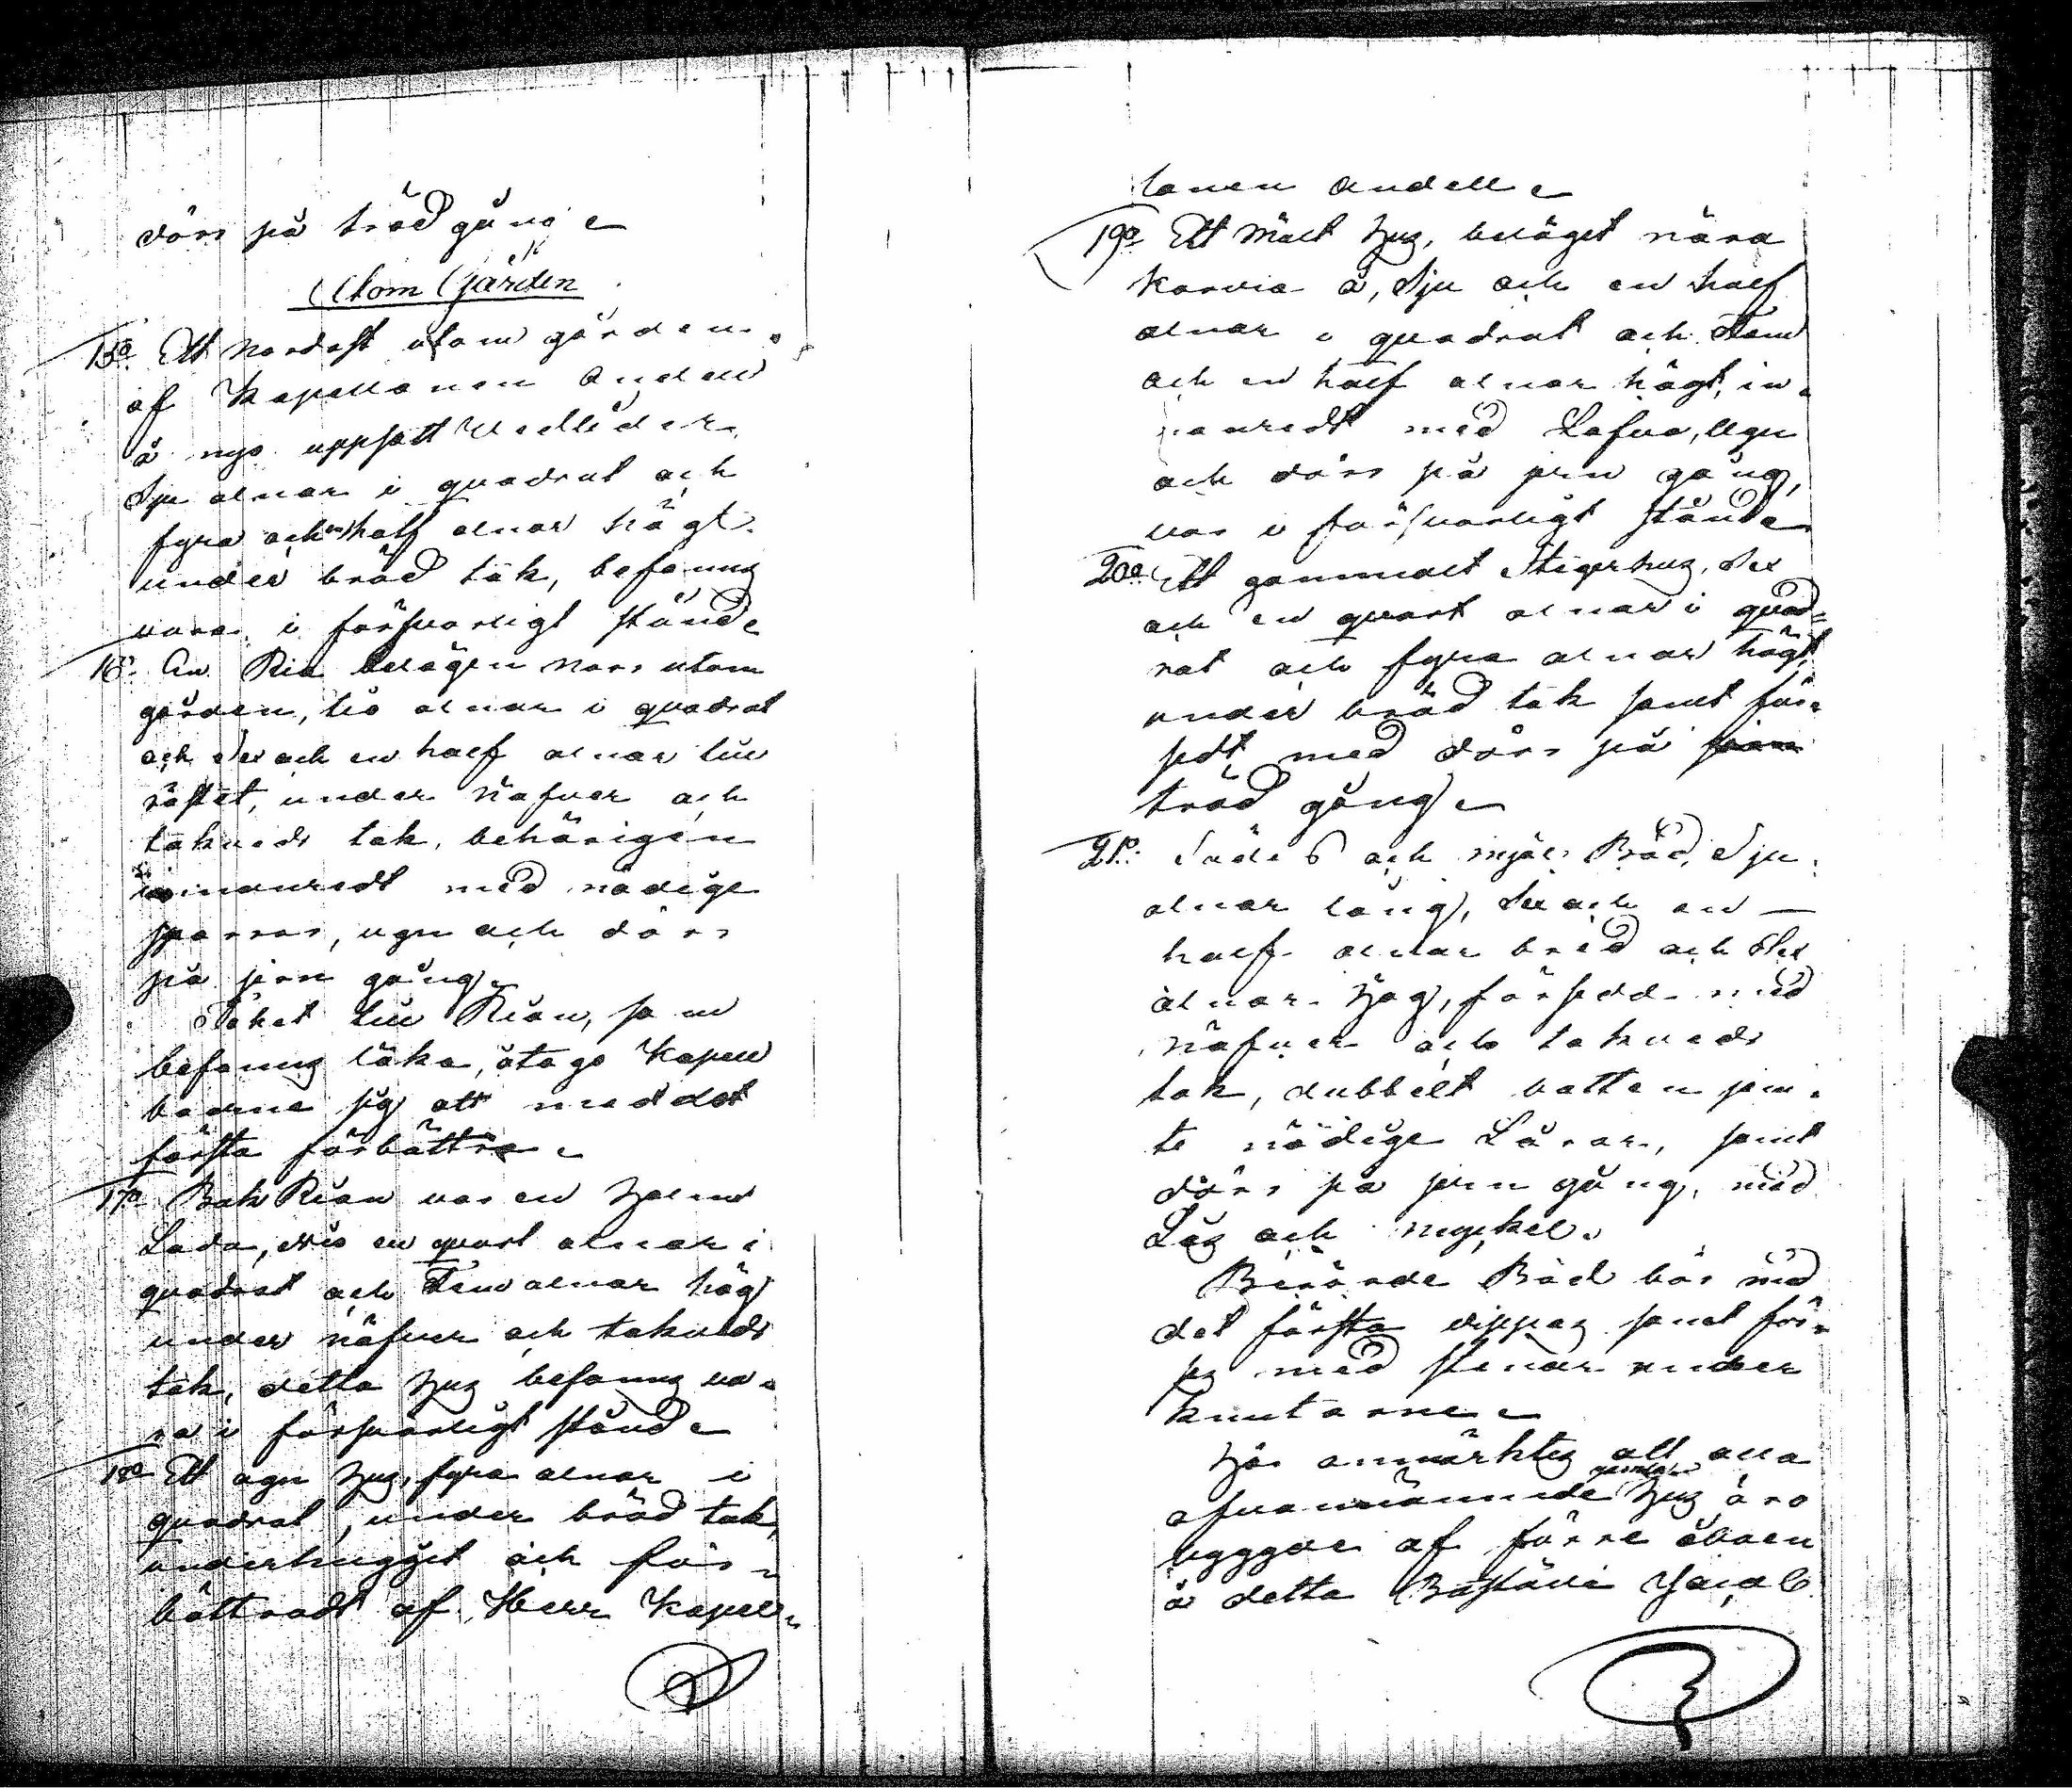 dörr på träd gång
Utom Gården
15o Ett nordost utom gården
af Kapellanen Andell
å nyo uppsatt Vedlider
Sju alnar i quadrat och
fyra och en half alnar högt
under bräd tak, befanns
vara i försvarligt stånd
16o En Ria belägen norr utom
gården, tio alnar i quadrat
och Sex och en half alnar till
röstet, under näfver och
takveds tak, behörigen
innanredt med nödige
sparrar, ugn och dörr
på jern gång.
Taket till Rian, som
befanns läka, åtago Kapell
boerne sig att med det
första förbättra
17o Bak Rian var en Halm
Lada, Nio en qvart alnar i
quadrat och Fem alnar hög
under näfver och takveds
tak, detta hus befanns va-
ra i försvarligt stånd
18o Ett agn hus, fyra alnar i
quadrat, under bräd tak,
underhugget och för-
bättradt af Herr Kapel-
lanen Andell
19o Ett Mält hus, beläget nära
Karvia å, Sju och en half
alnar i quadrat och Fem
och en half alnar högt, in-
nanredt med Lafva, Ugn
och dörr på jern gång,
var i försvarligt stånd
20o Ett gammalt Stigerhus, Sex
och en qvart alnar i quad-
rat och fyra alnar högt,
under bräd tak samt för-
sedt med dörr på jern
träd gång
21o Sädes och mjöl Bod, Sju
alnar lång, Sex och en
half alnar bred och Sex
alnar hög, försedd med
näfver och takveds
tak, dubbelt botten jem-
te nödige Lårar, samt
dörr på jern gång, med
Lås och nyckel.
Berörde Bod bör med
det första vippas samt för-
ses med stenar under
knutarne
Här anmärktes att alla
ofvannämnde gamla hus äro
uppgde af förre åboen
å detta Boställe Jacob